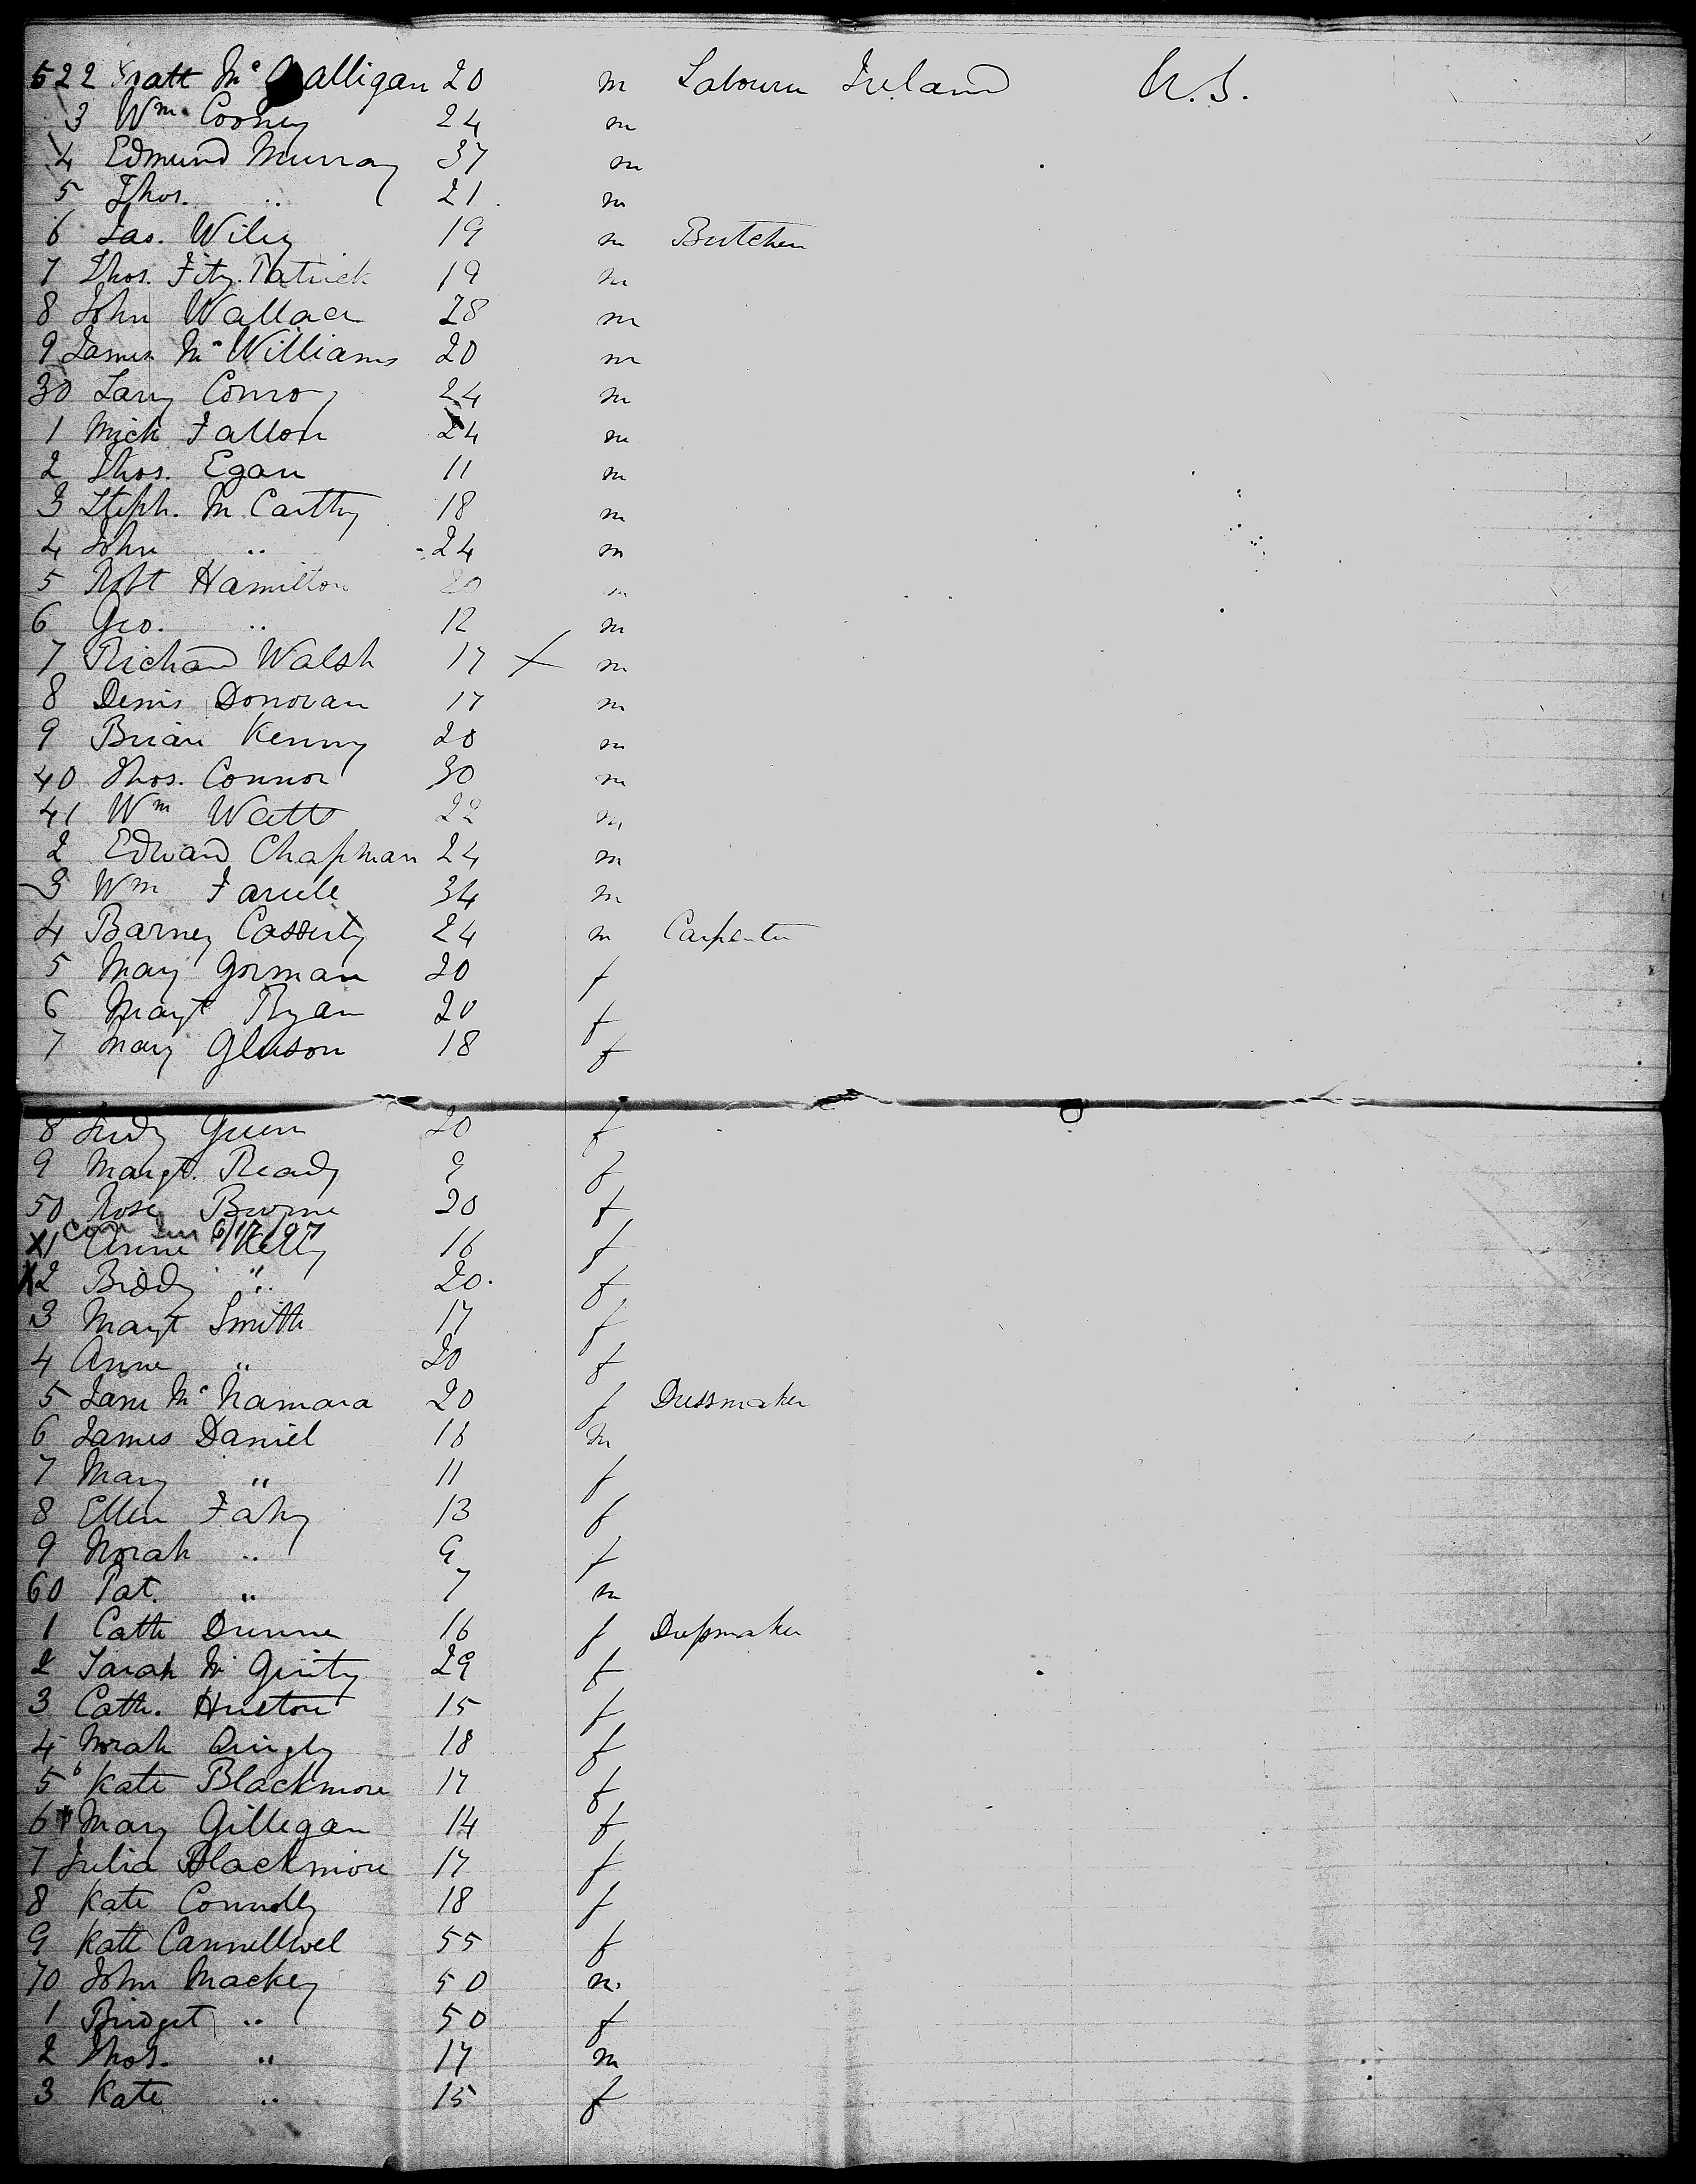 522 Matt Mc Galligan 20 m Labourer Ireland U.S.
3 Wm Cooney 24 m
4 Edmund Murray 37 m
5 Thos. " 21 m
6 Jas. Wiley 19 m Butcher
7 Thos. Fitz.Patrick 19 m
8 John Wallace 28 m
9 James Mc Williams 20 m
30 Larry Conroy 24 m
1 Mick Fallon 24 m
2 Thos. Egan 11 m
3 Steph. Mc Carthy 18 m
4 John " 24 m
5 Robt Hamilton 20 m
6 Geo. " 12 m
7 Richard Walsh 17 X m
8 Denis Donovan 17 m
9 Brian Kenny 20 m
40 Thos. Connor 30 m
41 Wm Watts 22 m
2 Edward Chapman 24 m
3 Wm 34 m
4 Barney Casserly 24 m Carpenter
5 Mary Gorman 20 f
6 Margt Ryan 20 f
7 Mary Gleason 18 f
8 Judy Green 20 f
9 Margt. Ready 9 f
50 Rose Byrne 20 f
6/17/97
X1 Anne Kelly 16 f
X2 Biddy " 20. f
3 Margt Smith 17 f
4 Anne " 20 f
5 Jane Mc Namara 20 f Dressmaker
6 James Daniel 18 m
7 Mary " 11 f
8 Ellen Fahy 13 f
9 Norah " 9 f
60 Pat. " 7 m
1 Cath Dunne 16 f Dressmaker
2 Sarah Mc Ginty 29 f
3 Cath. 15 f
4 Norah 18 f
5 Kate Blackmore 17 f
6 Mary Gillegan 14 f
7 Julia Blackmore 17 f
8 Kate Connolly 18 f
9 Kate 55 f
70 John Mackey 50 m
1 Bridget " 50 f
2 Thos. " 17 m
3 Kate " 15 f